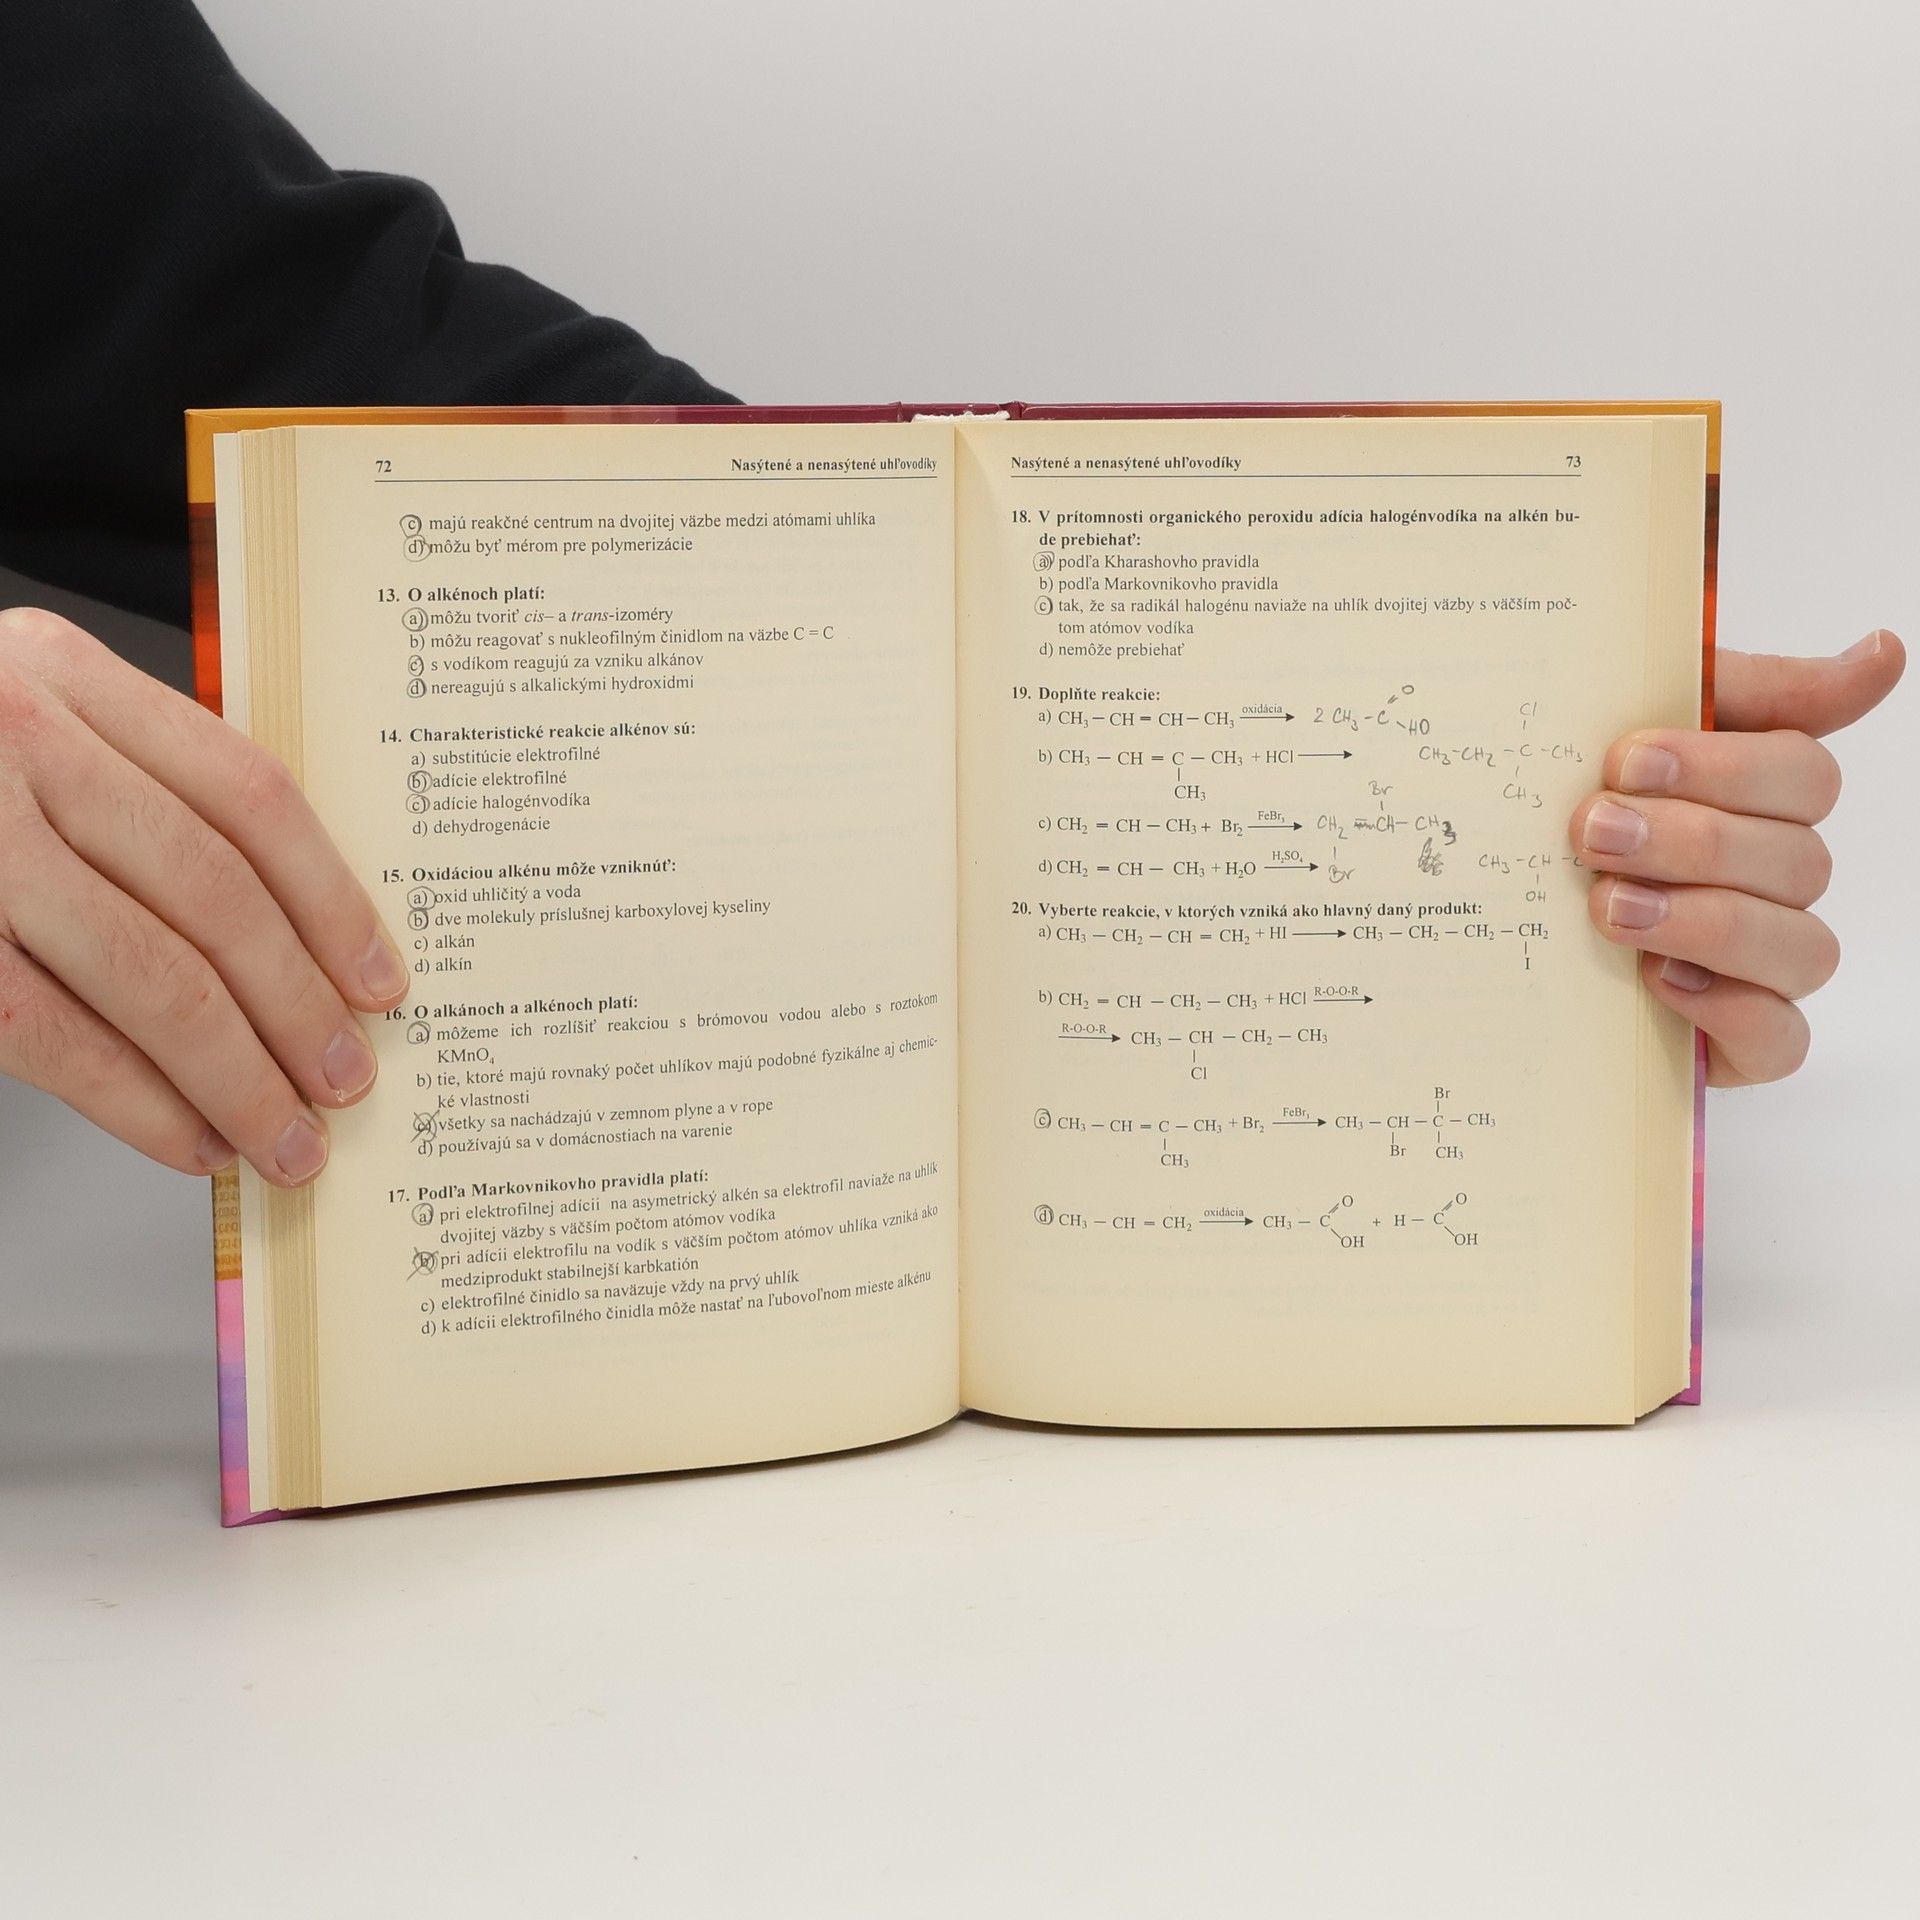 72 Nasýtené a nenasýtené uhľovodíky
c) majú reakčné centrum na dvojitej väzbe medzi atómami uhlíka
d) môžu byť mérom pre polymerizácie
13. O alkénoch platí:
a) môžu tvoriť cis– a trans-izoméry
b) môžu reagovať s nukleofilným činidlom na väzbe C = C
c) s vodíkom reagujú za vzniku alkánov
d) nereagujú s alkalickými hydroxidmi
14. Charakteristické reakcie alkénov sú:
a) substitúcie elektrofilné
b) adície elektrofilné
c) adície halogénvodíka
d) dehydrogenácie
15. Oxidáciou alkénu môže vzniknúť:
a) oxid uhličitý a voda
b) dve molekuly príslušnej karboxylovej kyseliny
c) alkán
d) alkín
16. O alkánoch a alkénoch platí:
a) môžeme ich rozlíšiť reakciou s brómovou vodou alebo s roztokom
KMnO₄
b) tie, ktoré majú rovnaký počet uhlíkov majú podobné fyzikálne aj chemic-
ké vlastnosti
c) všetky sa nachádzajú v zemnom plyne a v rope
d) používajú sa v domácnostiach na varenie
17. Podľa Markovnikovho pravidla platí:
a) pri elektrofilnej adícii na asymetrický alkén sa elektrofil naviaže na uhlík
dvojitej väzby s väčším počtom atómov vodíka
b) pri adícii elektrofilu na vodík s väčším počtom atómov uhlíka vzniká ako
medziprodukt stabilnejší karbkatión
c) elektrofilné činidlo sa naväzuje vždy na prvý uhlík
d) k adícii elektrofilného činidla môže nastať na ľubovoľnom mieste alkénu
Nasýtené a nenasýtené uhľovodíky 73
18. V prítomnosti organického peroxidu adícia halogénvodíka na alkén bu-
de prebiehať:
a) podľa Kharashovho pravidla
b) podľa Markovnikovho pravidla
c) tak, že sa radikál halogénu naviaže na uhlík dvojitej väzby s väčším poč-
tom atómov vodíka
d) nemôže prebiehať
19. Doplňte reakcie:
O
oxidácia
a) CH₃ — CH = CH — CH₃ → 2 CH₃ - C
HO
Cl
b) CH₃ — CH = C — CH₃ + HCl → CH₃-CH₂ - C - CH₃
CH₃ CH₃
Br
FeBr₃
c) CH₂ = CH — CH₃ + Br₂ → CH₂ CH - CH₃
Br
H₂SO₄
d) CH₂ = CH — CH₃ + H₂O → CH₃ - CH -
OH
20. Vyberte reakcie, v ktorých vzniká ako hlavný daný produkt:
a) CH₃ — CH₂ — CH = CH₂ + HI → CH₃ — CH₂ — CH₂ — CH₂
I
R-O-O-R
b) CH₂ = CH — CH₂ — CH₃ + HCl →
R-O-O-R
→ CH₃ — CH — CH₂ — CH₃
Cl
Br
FeBr₃
c) CH₃ — CH = C — CH₃ + Br₂ → CH₃ — CH — C — CH₃
CH₃ Br CH₃
O O
oxidácia
d) CH₃ — CH = CH₂ → CH₃ — C + H — C
OH OH